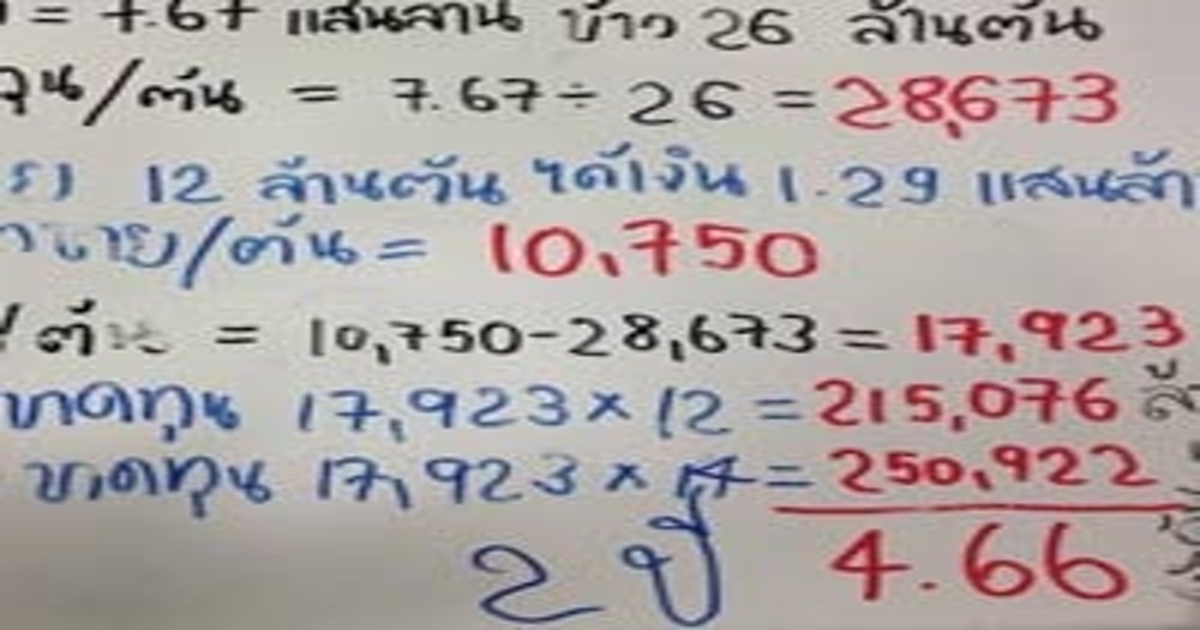 = 7.67 แสนล้าน ข้าว 26 ล้านตัน
ทุน/ตัน = 7.67 ÷ 26 = 28,673
12 ล้านตัน ได้เงิน 1.29 แสนล้า
ขาย/ตัน = 10,750
/ตัน = 10,750-28,673 = 17,923
ขาดทุน 17,923 × 12 = 215,076
ขาดทุน 17,923 × 14 = 250,922
2 ปี 4.66